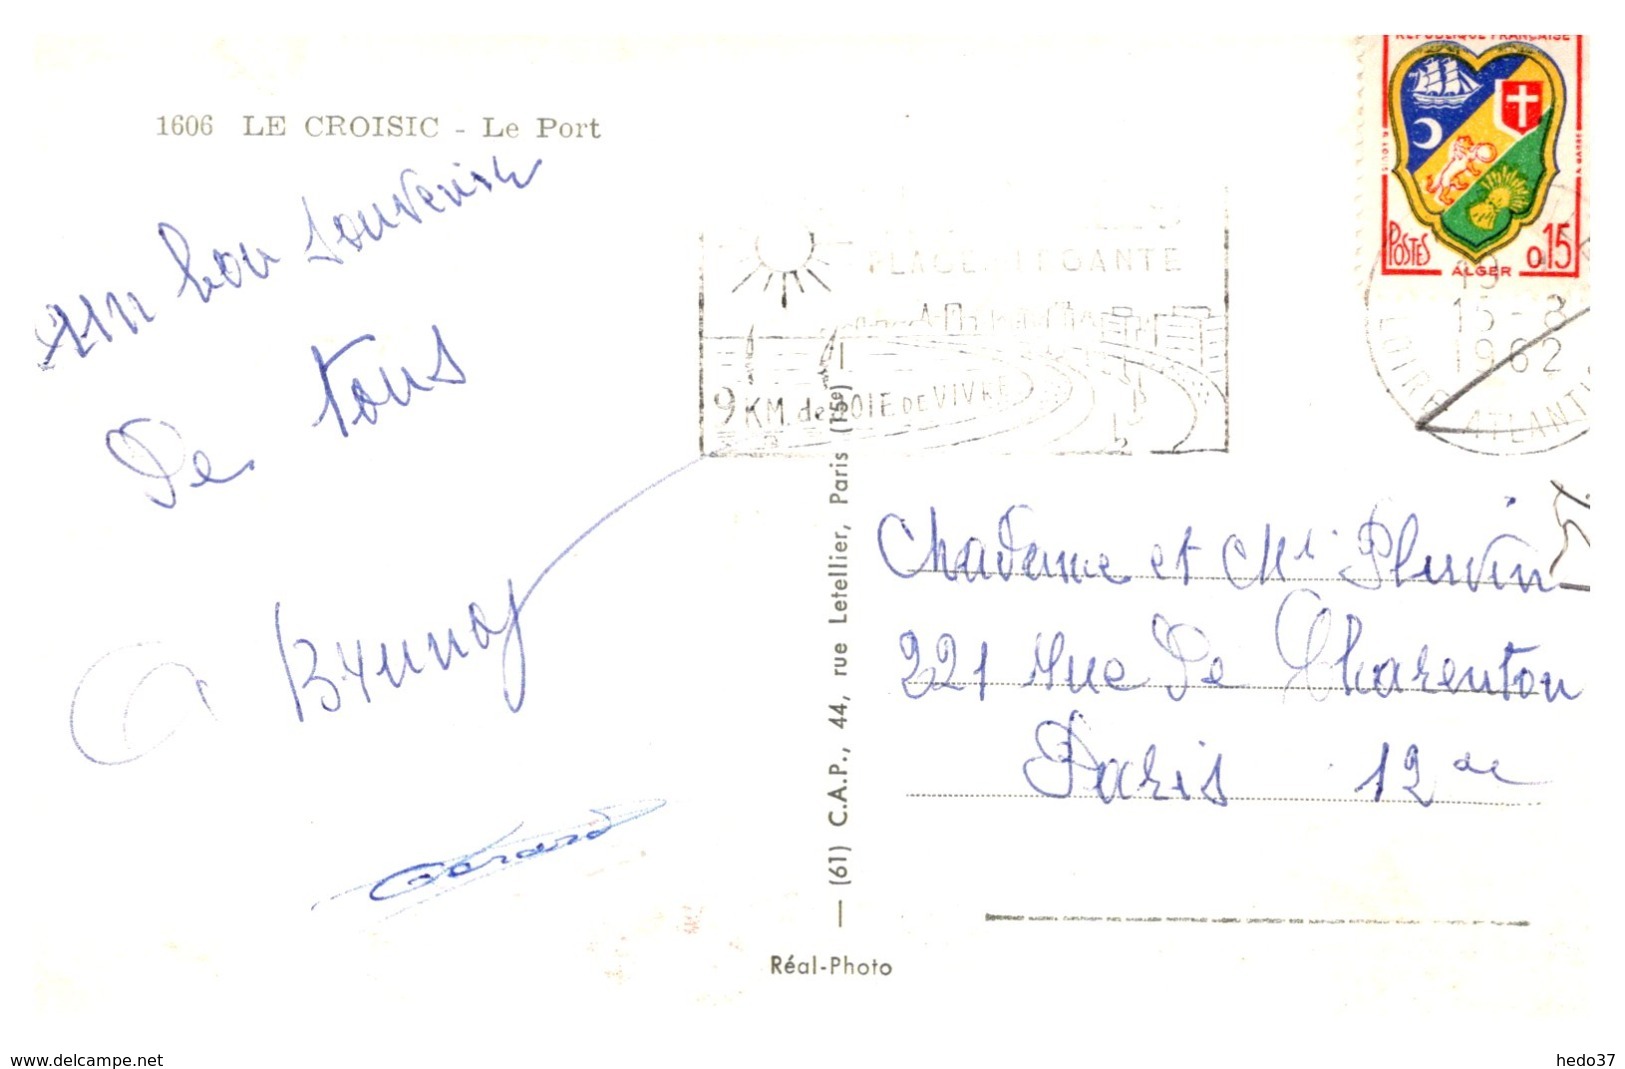 1606 LE CROISIC - Le Port
un bon souvenir
De tous
Brunoy
Gérard
RÉPUBLIQUE FRANÇAISE
POSTES
ALGER
0,15
PLAGE ÉLÉGANTE
9 KM. de JOIE DE VIVRE
19
15-8
1962
LOIRE-ATLANTI
Madame et Mr Pluvin
221 rue De Charenton
Paris 12 de
— (61) C.A.P., 44, rue Letellier, Paris (15e)
Réal-Photo
www.delcampe.net
hedo37